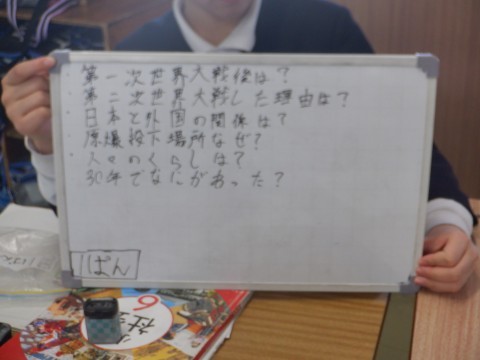 ・第一次世界大戦後は?
・第二次世界大戦した理由は?
・日本と外国の関係は?
原爆投下場所なぜ?
・人々のくらしは?
30年でなにがあった?
ぱん
社
6